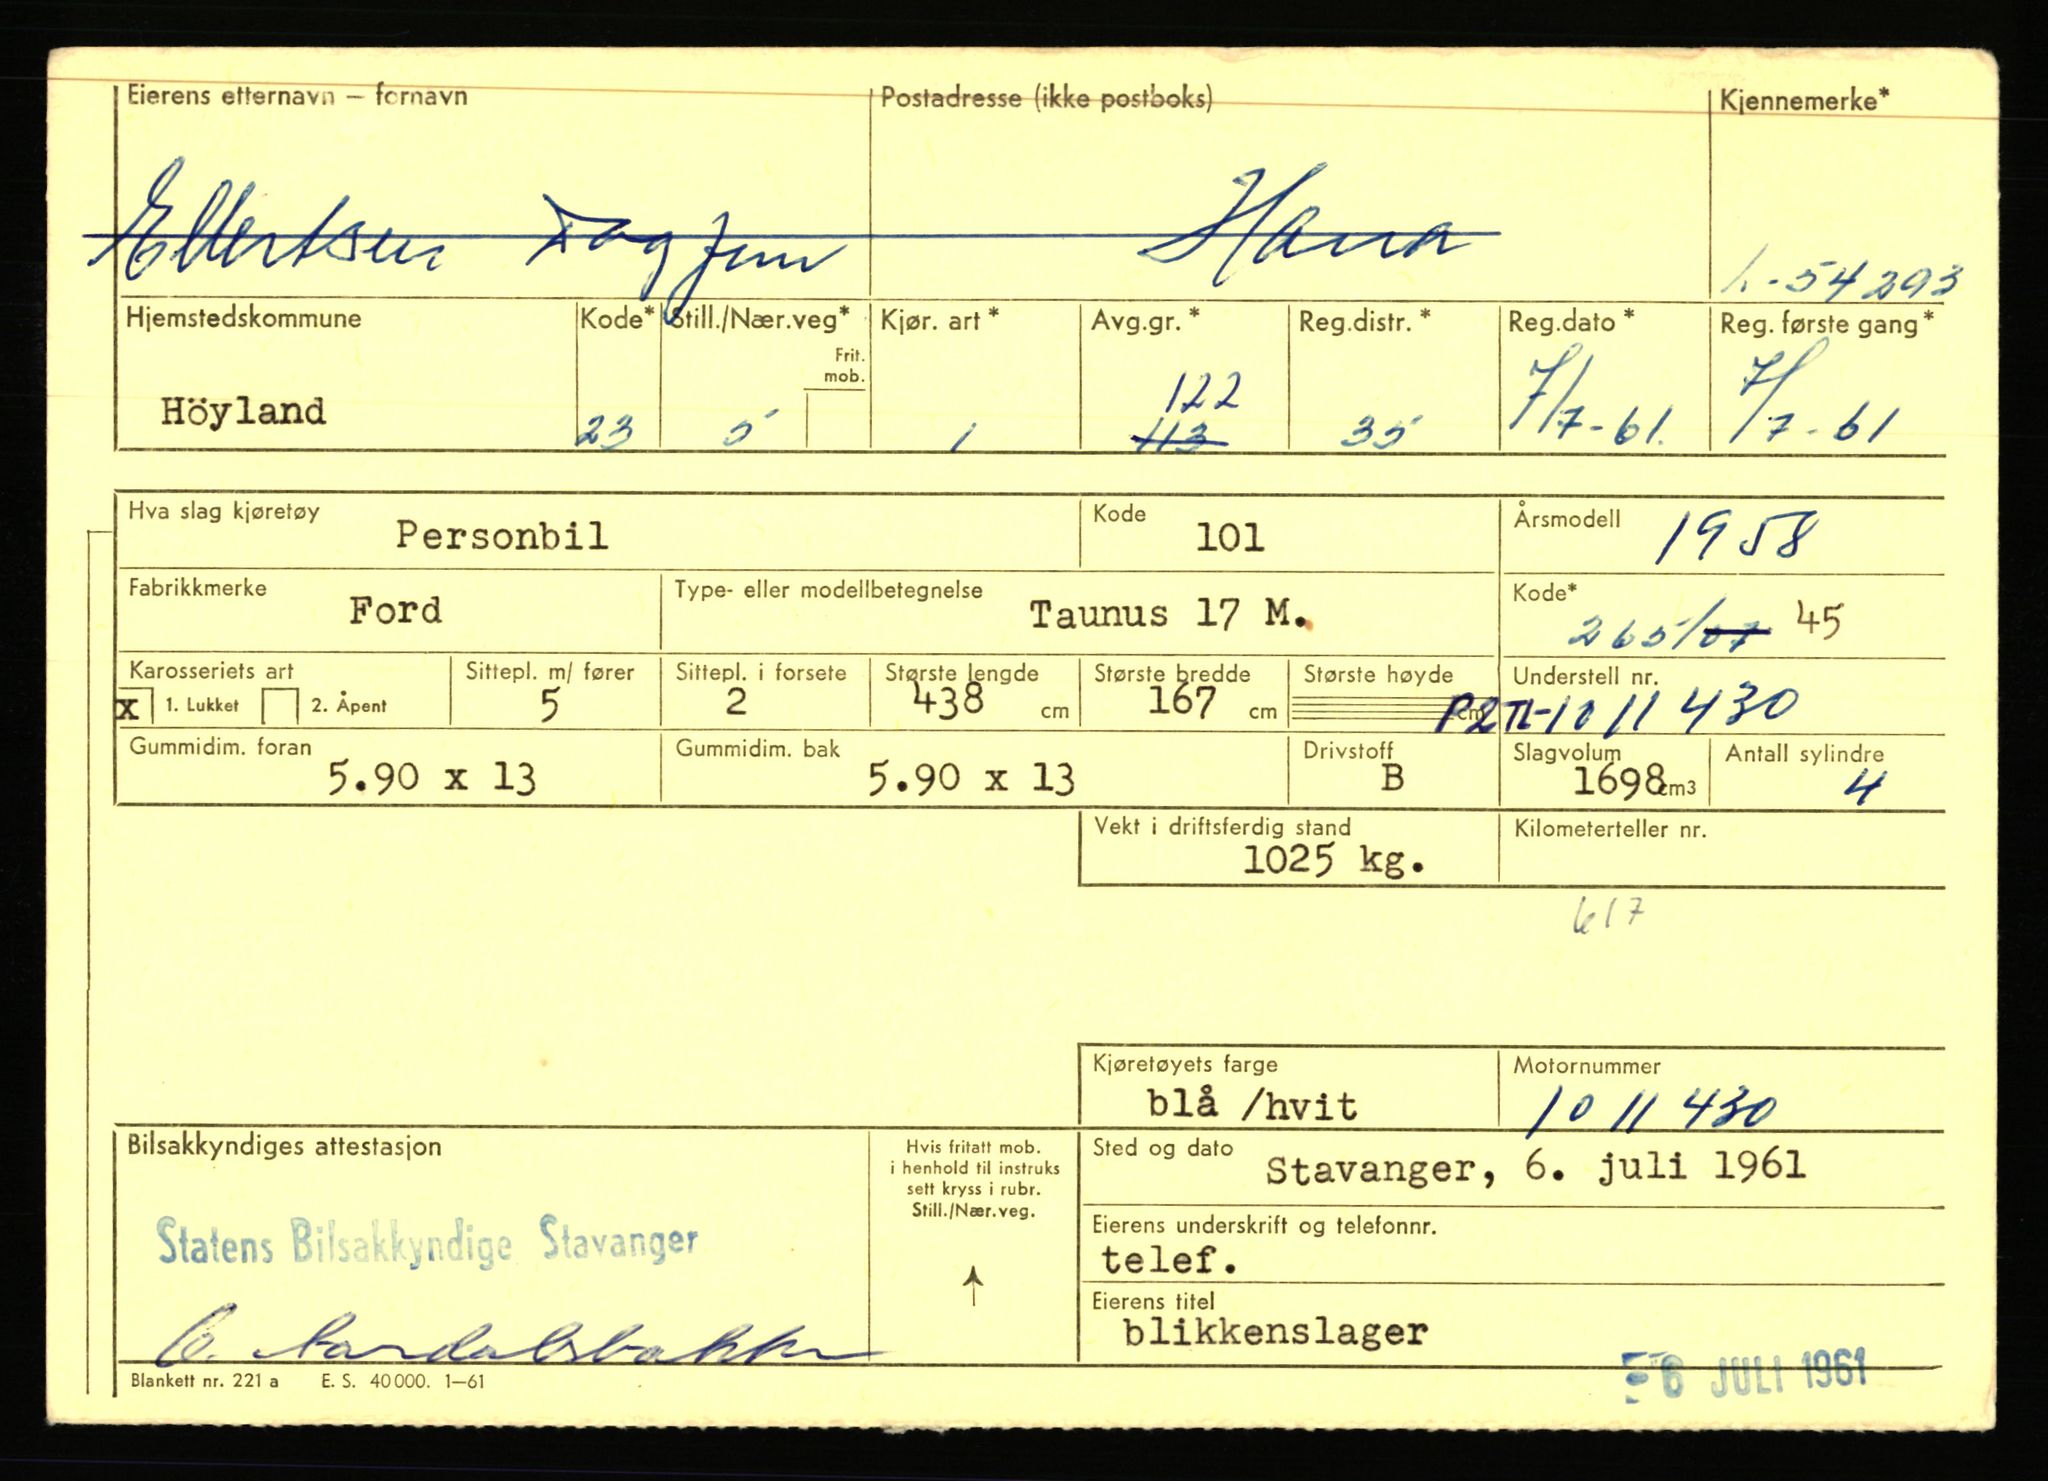 Eierens etternavn – fornavn Postadresse (ikke postboks) Kjennemerke*
Ellertsen Dagfinn Hana
L-54293
Hjemstedskommune Kode* Still./Nær.veg* Kjør. art* Avg.gr.* Reg.distr.* Reg.dato* Reg. første gang*
Frit.
mob.
122
Höyland 23 5 1 113 35 7/7-61. 7/7-61
Hva slag kjøretøy Kode Årsmodell
Personbil 101 1958
Fabrikkmerke Type- eller modellbetegnelse Kode*
Ford Taunus 17 M. 265/07 45
Karosseriets art Sittepl. m/ fører Sittepl. i forsete Største lengde Største bredde Største høyde Understell nr.
x 1. Lukket 2. Åpent 5 2 438 cm 167 cm cm P2TL-1011430
Gummidim. foran Gummidim. bak Drivstoff Slagvolum Antall sylindre
5.90 x 13 5.90 x 13 B 1698 cm3 4
Vekt i driftsferdig stand Kilometerteller nr.
1025 kg.
617
Kjøretøyets farge Motornummer
blå /hvit 1011430
Bilsakkyndiges attestasjon Hvis fritatt mob.
i henhold til instruks
sett kryss i rubr.
Still./Nær.veg.
Sted og dato
Stavanger, 6. juli 1961
Statens Bilsakkyndige Stavanger
Eierens underskrift og telefonnr.
telef.
Eierens titel
blikkenslager
Blankett nr. 221 a E. S. 40 000. 1–61
6 JULI 1961